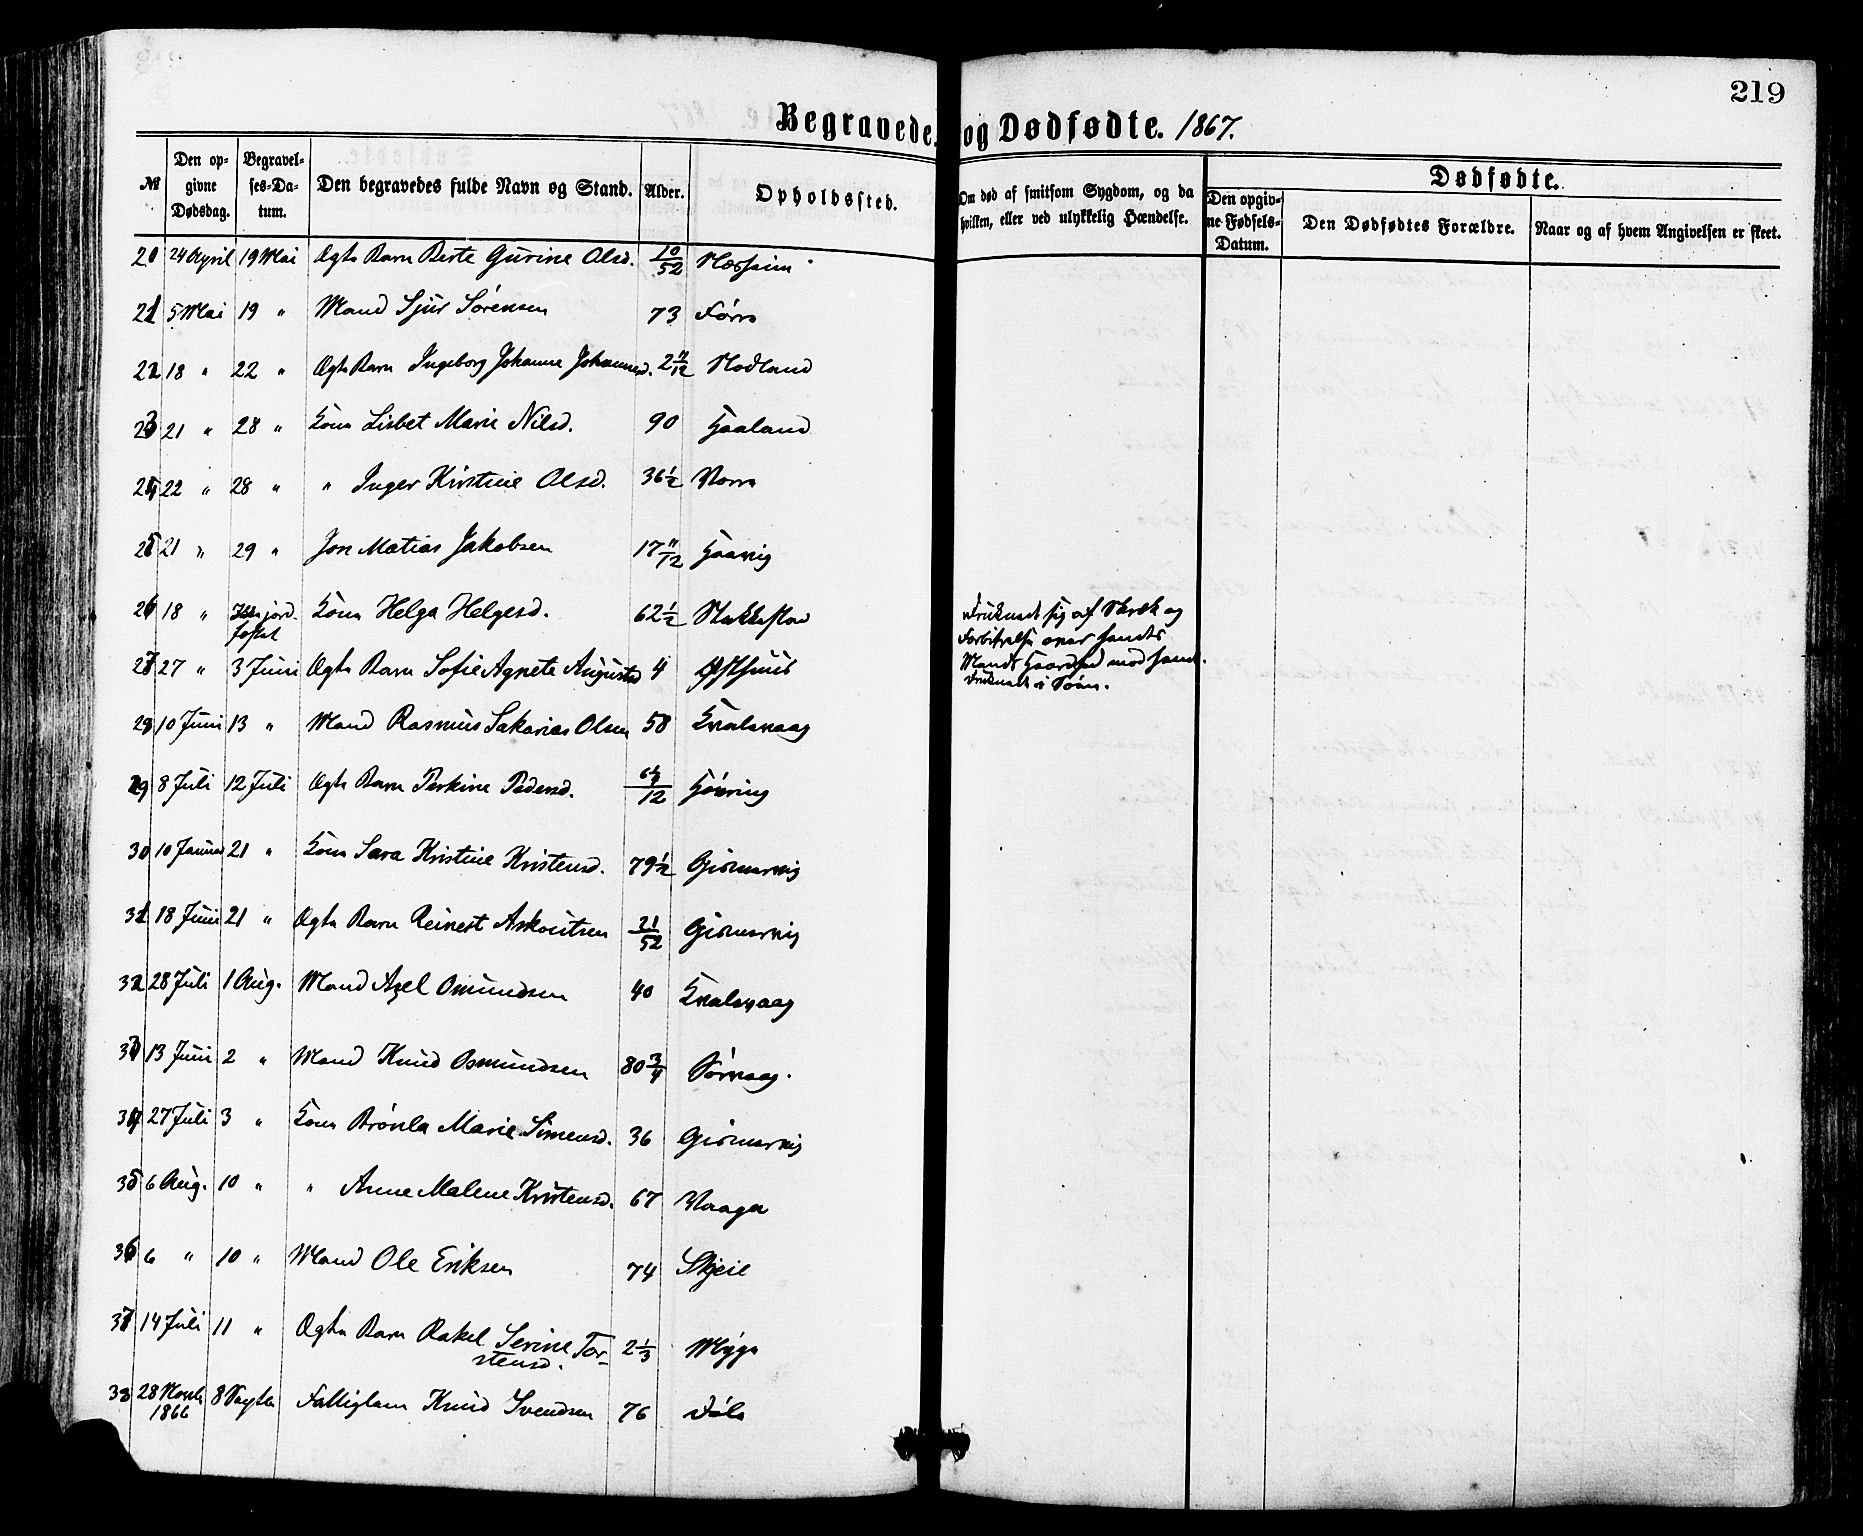 219
Begravede og Dødfødte. 1867.
№ Den opgivne Dødsdag. Begravelses-Datum. Den begravedes fulde Navn og Stand. Alder. Opholdssted. Om død af smitsom Sygdom, og da hvilken, eller ved ulykkelig Hændelse. Dødfødte.
Den opgivne Fødsels-Datum. Den Dødfødtes Forældre. Naar og af hvem Angivelsen er skeet.
20 24 April 19 Mai Ægte Barn Berte Gurine Olsd. 10/52 Næsheim
21 5 Mai 19 " Mand Sjur Sørensen 73 Førre
22 18 " 22 " Ægte Barn Ingeborg Johanne Johannesd. 2 11/12 Nodland
23 21 " 28 " Kone Lisbet Marie Nilsd. 90 Haaland
24 22 " 28 " " Inger Kristine Olsd. 36½ Vorre
25 21 " 29 " Jon Matias Jakobsen 17 11/12 Haavig
26 18 " jordfæstet Kone Helga Helgesd. 62½ Stakkestad druknede sig af Skræk og
Forbitrelse over hendes
Mands Haardhed mod hende.
druknede i Søen.
27 27 " 3 Juni Ægte Barn Sofie Agnete Augustsd 4 Østhuus
28 10 Juni 13 " Mand Rasmus Sakarias Olsen 58 Kvalevaag
29 8 Juli 12 Juli Ægte Barn Perkine Pedersd. /12 Høvring
30 10 Januar 21 " Kone Sara Kristine Kristensd. 79½ Gismarvig
31 18 Juni 21 " Ægte Barn Reinert Askoutsen 21/52 Gismarvig
32 28 Juli 1 Aug. Mand Axel Osmundsen 40 Kvalevaag
33 13 Juni 2 " Mand Knud Osmundsen 80 3/4 Sørvaag.
34 27 Juli 3 " Kone Brønla Marie Simensd. 36 Gismarvig
35 6 Aug. 10 " " Anne Malene Kristensd. 67 Vaage
36 6 " 10 " Mand Ole Eriksen 74 Skjeie
37 14 Juli 11 " Ægte Barn Rakel Serine Tor- 2 1/3 Myge
stensd.
38 28 Novbr 1866 8 Septbr Fattiglem Knud Svendsen 76 Døle